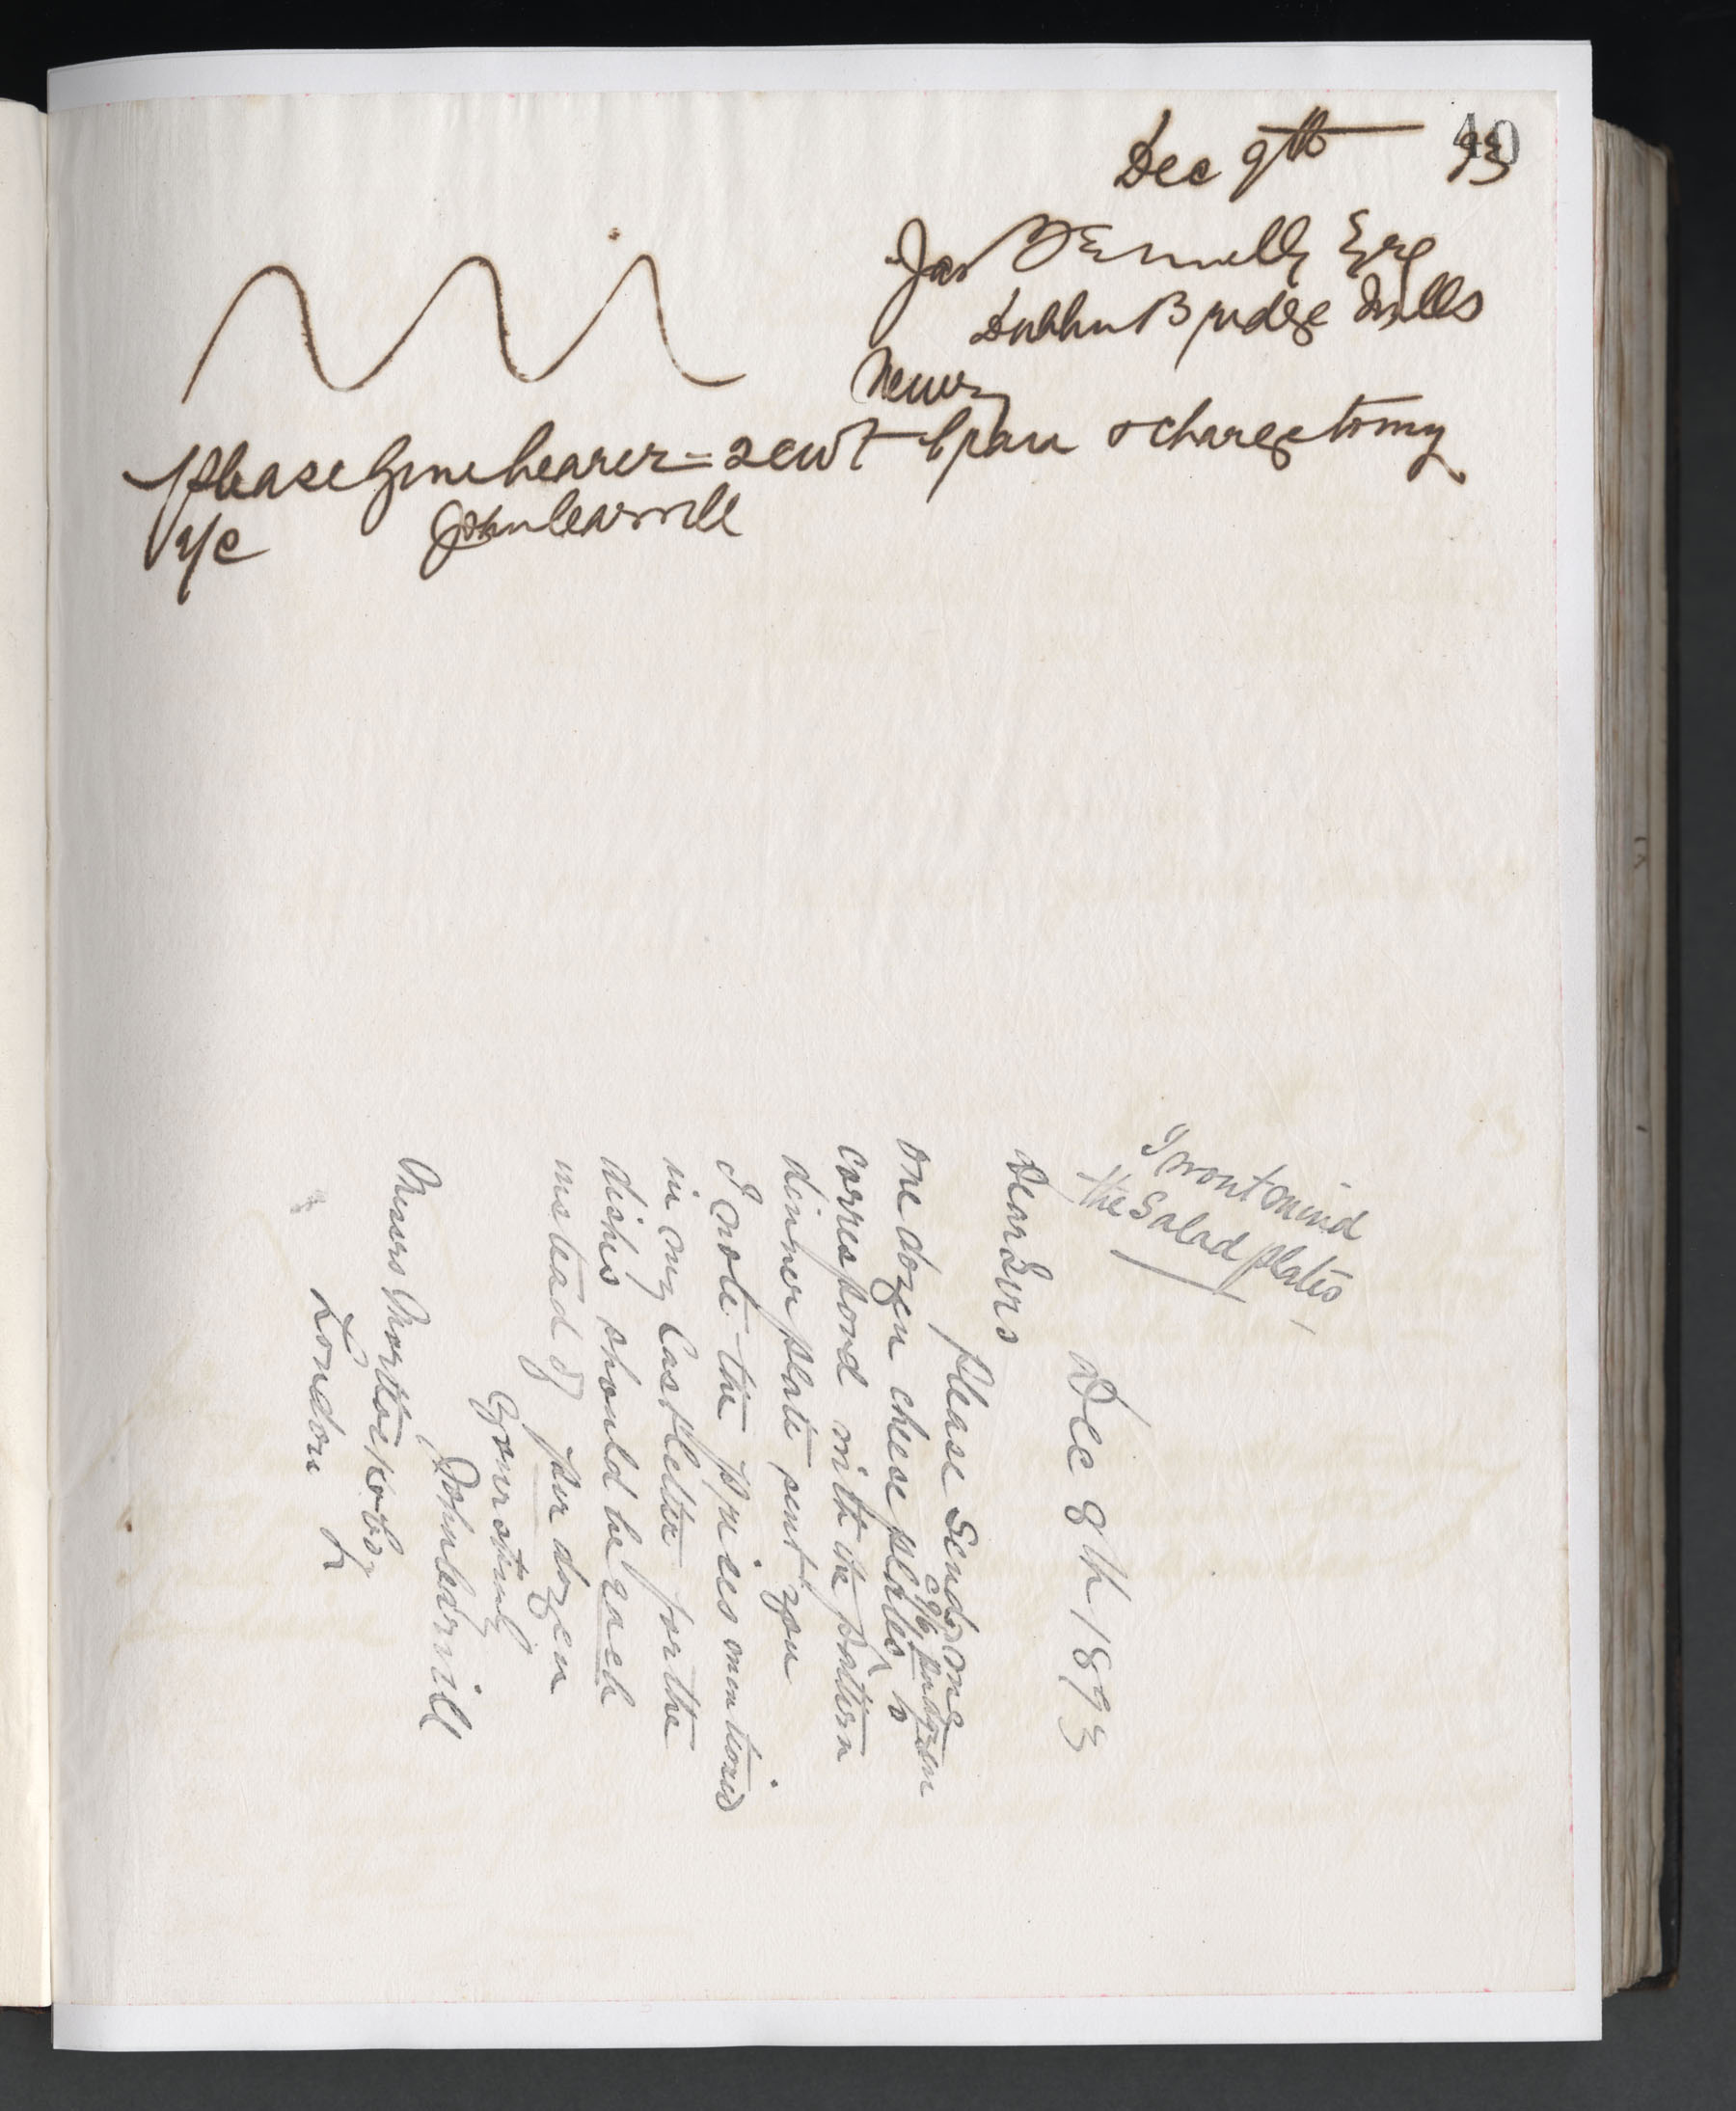 40
Dec 9th 93
Jas Esq
Dublin Bridge Mills
Newry
Please Give bearer = 2 cwt Bran & charge to my
a/c John Carvill
I wont mind
the Salad plates
Dec 9th 1893
Dear Sirs
Please Send me
one dozen cheese plates to
correspond with the pattern
dinner plate sent you
I note the prices mentioned
in my letter for the
dishes should be each
instead of per dozen
Yours truly
John Carvill
Messrs Mortlock & Co
London